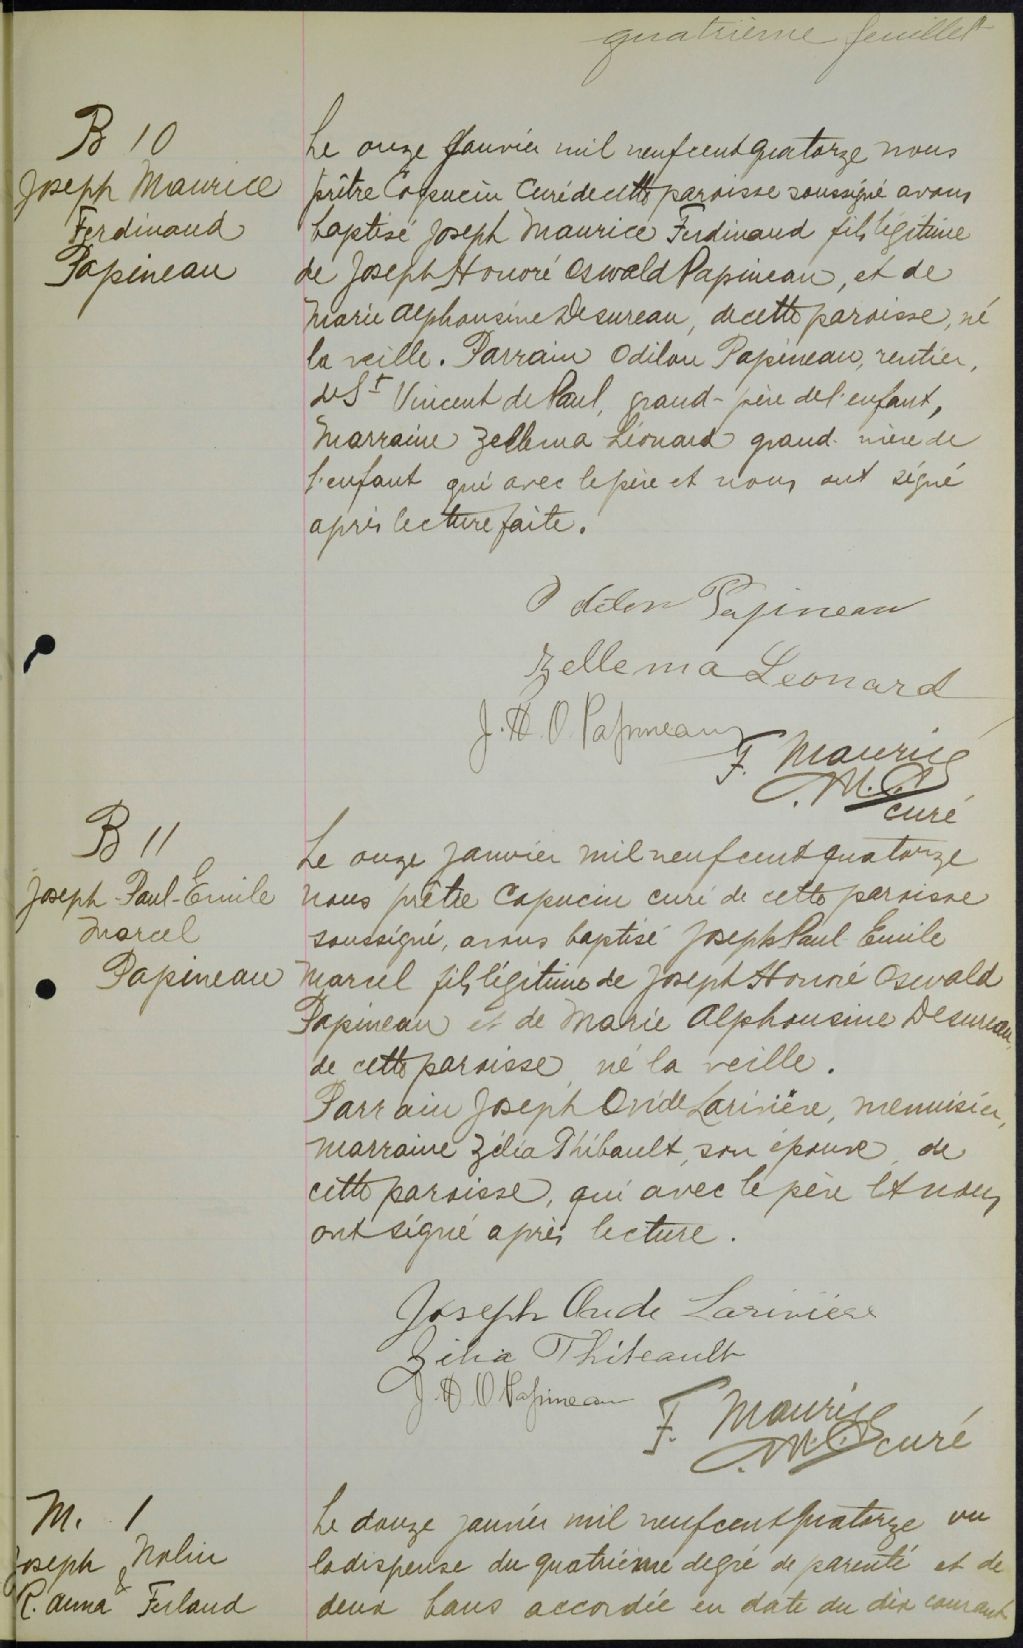 quatrième feuillet
B 10
Joseph Maurice
Ferdinand
Papineau
Le onze Janvier mil neuf cent quatorze nous
prêtre Capucin Curé de cette paroisse soussigné avons
baptisé Joseph Maurice Ferdinand fils légitime
de Joseph Honoré Oswald Papineau, et de
Marie Alphonsine Desureau, de cette paroisse, né
la veille. Parrain Odilon Papineau, rentier,
de St Vincent de Paul, grand-père de l'enfant,
Marraine Zellema Léonard grand-mère de
l'enfant qui avec le père et nous ont signé
après lecture faite.
Odilon Papineau
Zellema Leonard
J. H. O. Papineau
F. Maurice
curé
B 11
Joseph-Paul-Emile
Marcel
Papineau
Le onze Janvier mil neuf cent quatorze
nous prêtre Capucin curé de cette paroisse
soussigné, avons baptisé Joseph Paul Emile
Marcel fils légitime de Joseph Honoré Oswald
Papineau et de Marie Alphonsine Desureau,
de cette paroisse, né la veille.
Parrain Joseph Ovide Larivière, menuisier,
Marraine Zélia Thibault, son épouse, de
cette paroisse, qui avec le père et nous
ont signé après lecture.
Joseph Ovide Lariviere
Zelia Thibeault
J. H. O Papineau
F. Maurice
curé
M. 1
Joseph Nolin
&
R. Anna Ferland
Le douze janvier mil neuf cent quatorze vu
la dispense du quatrième degré de parenté et de
deux bans accordée en date du dix courant